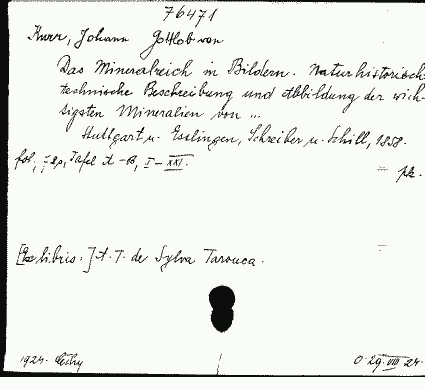 76471
Kurr, Johann Gottlob von
Das Mineralreich in Bildern. Naturhistorisch-
technische Beschreibung und Abbildung der wich-
tigsten Mineralien von ...
Stuttgart u. Esslingen, Schreiber u. Schill, 1858.
fol., Tafel A-B, I-XXI.
pk.
[Ex libris:] A. T. de Sylva Tarouca.
1924.
0.29.VIII 24.